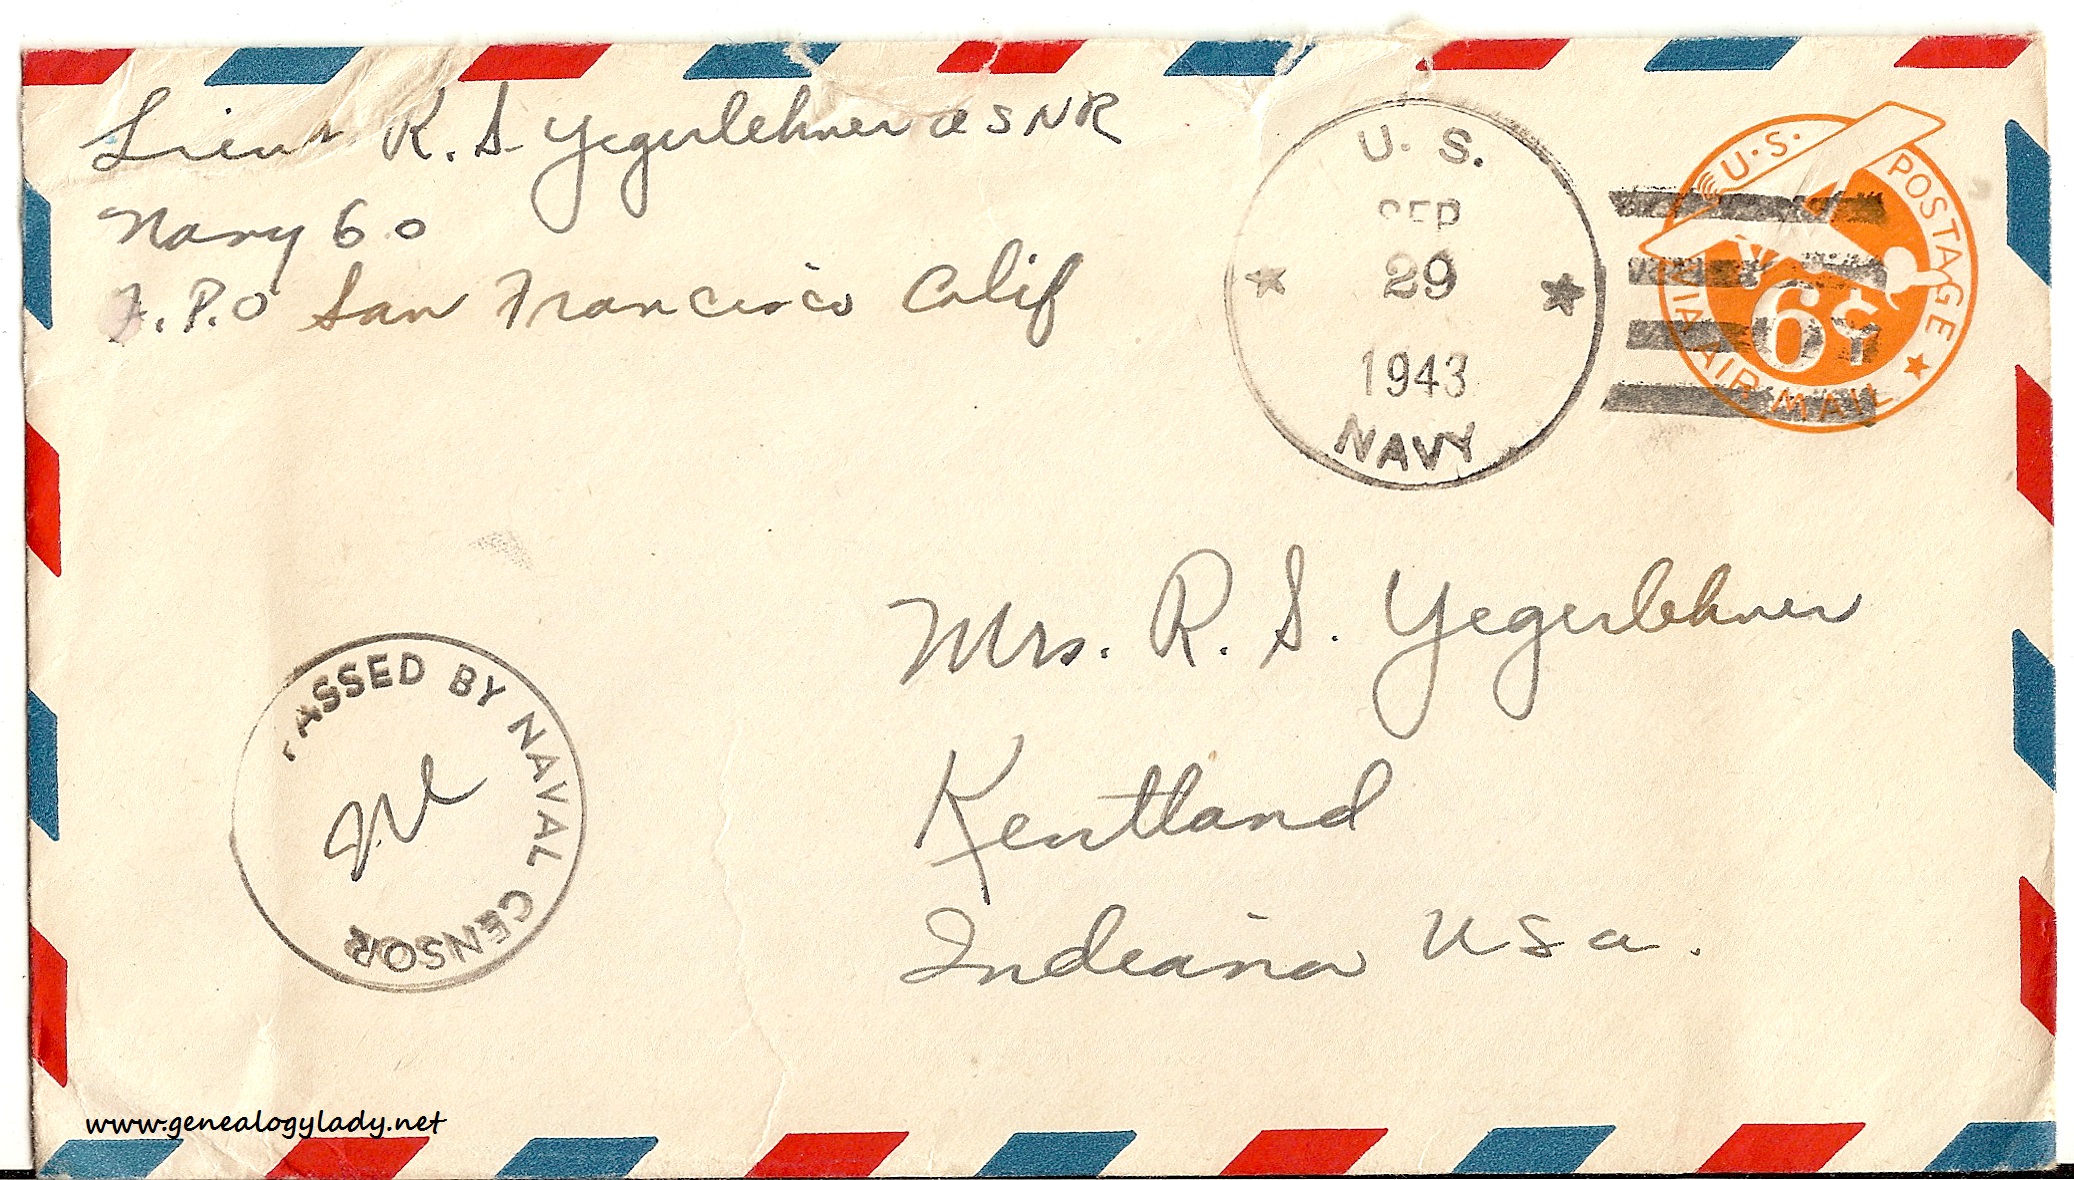 Lieut R. S. Yegerlehner USNR
Navy 60
F.P.O San Francisco Calif
U. S.
SEP
29
1943
NAVY
U.S. POSTAGE
VIA AIR MAIL
6¢
Mrs. R. S. Yegerlehner
Kentland
Indiana USA.
PASSED BY NAVAL CENSOR
www.genealogylady.net